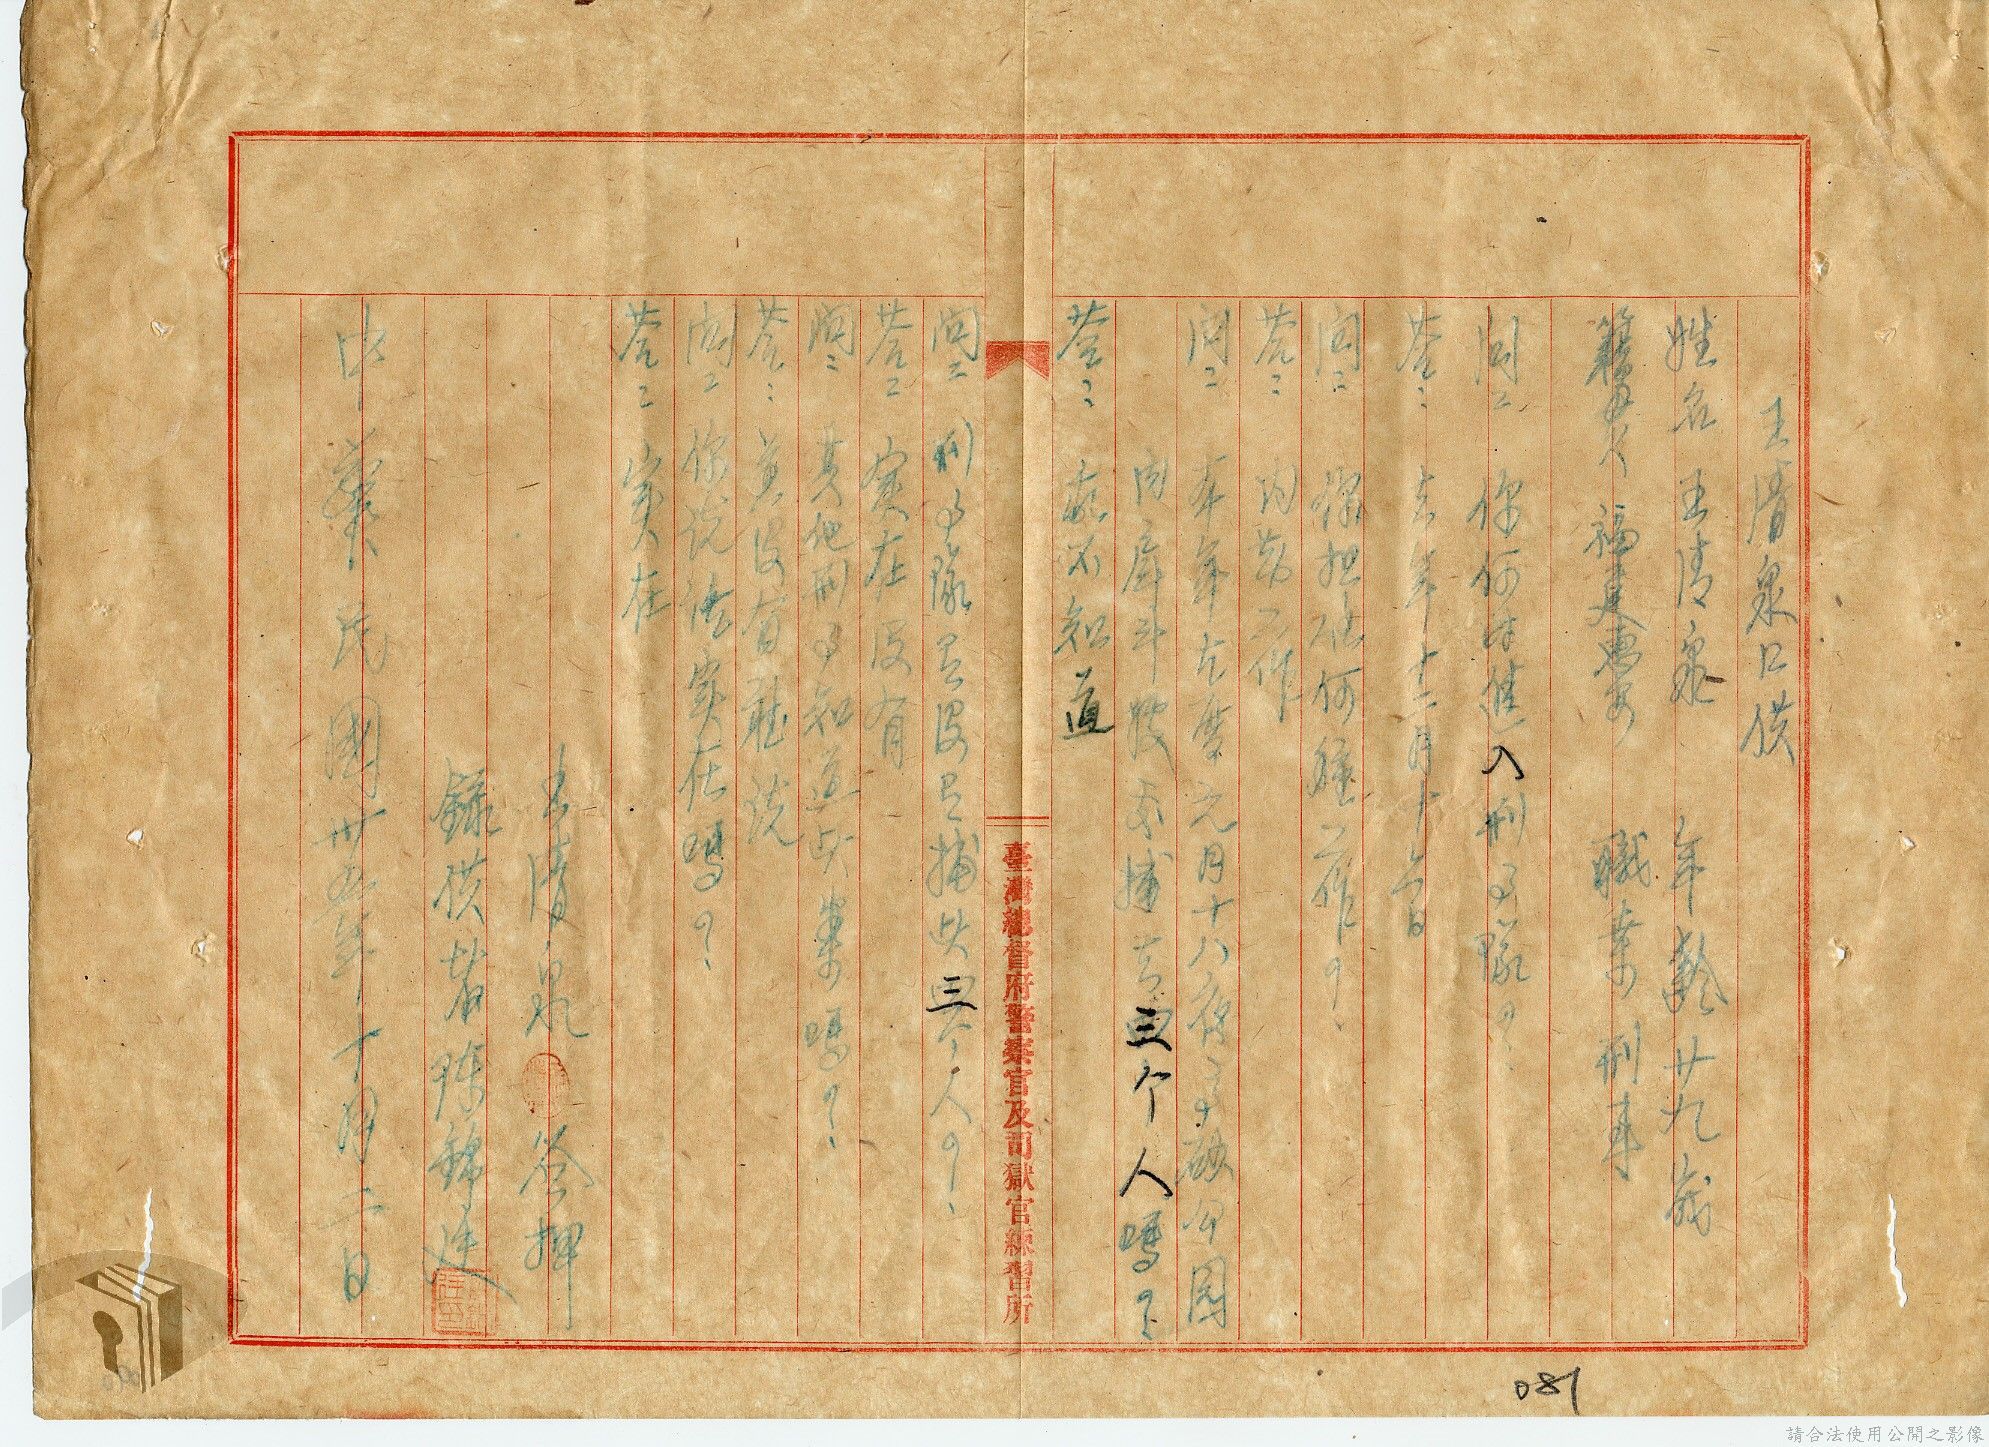 王清泉口供
姓名 王清泉 年齡廿九歲
籍貫 福建惠安 職業 刑事
問: 你何時進入刑事隊?
答: 去年十二月十六日
問: 你担任何種工作?
答: 内勤工作
問: 本年 元月十八夜 公園
内 捕去三个人嗎?
答: 不知道
問: 刑事隊是没是捕此三个人?
答: 實在没有
問: 其他刑事知道此案嗎?
答: 並没有聽説
問: 你説話實在嗎?
答: 實在
王清泉 簽押
錄供者 陳錦廷
中華民國卅五年十月二日
臺灣總督府警察官及司獄官練習所
081
請合法使用公開之影像